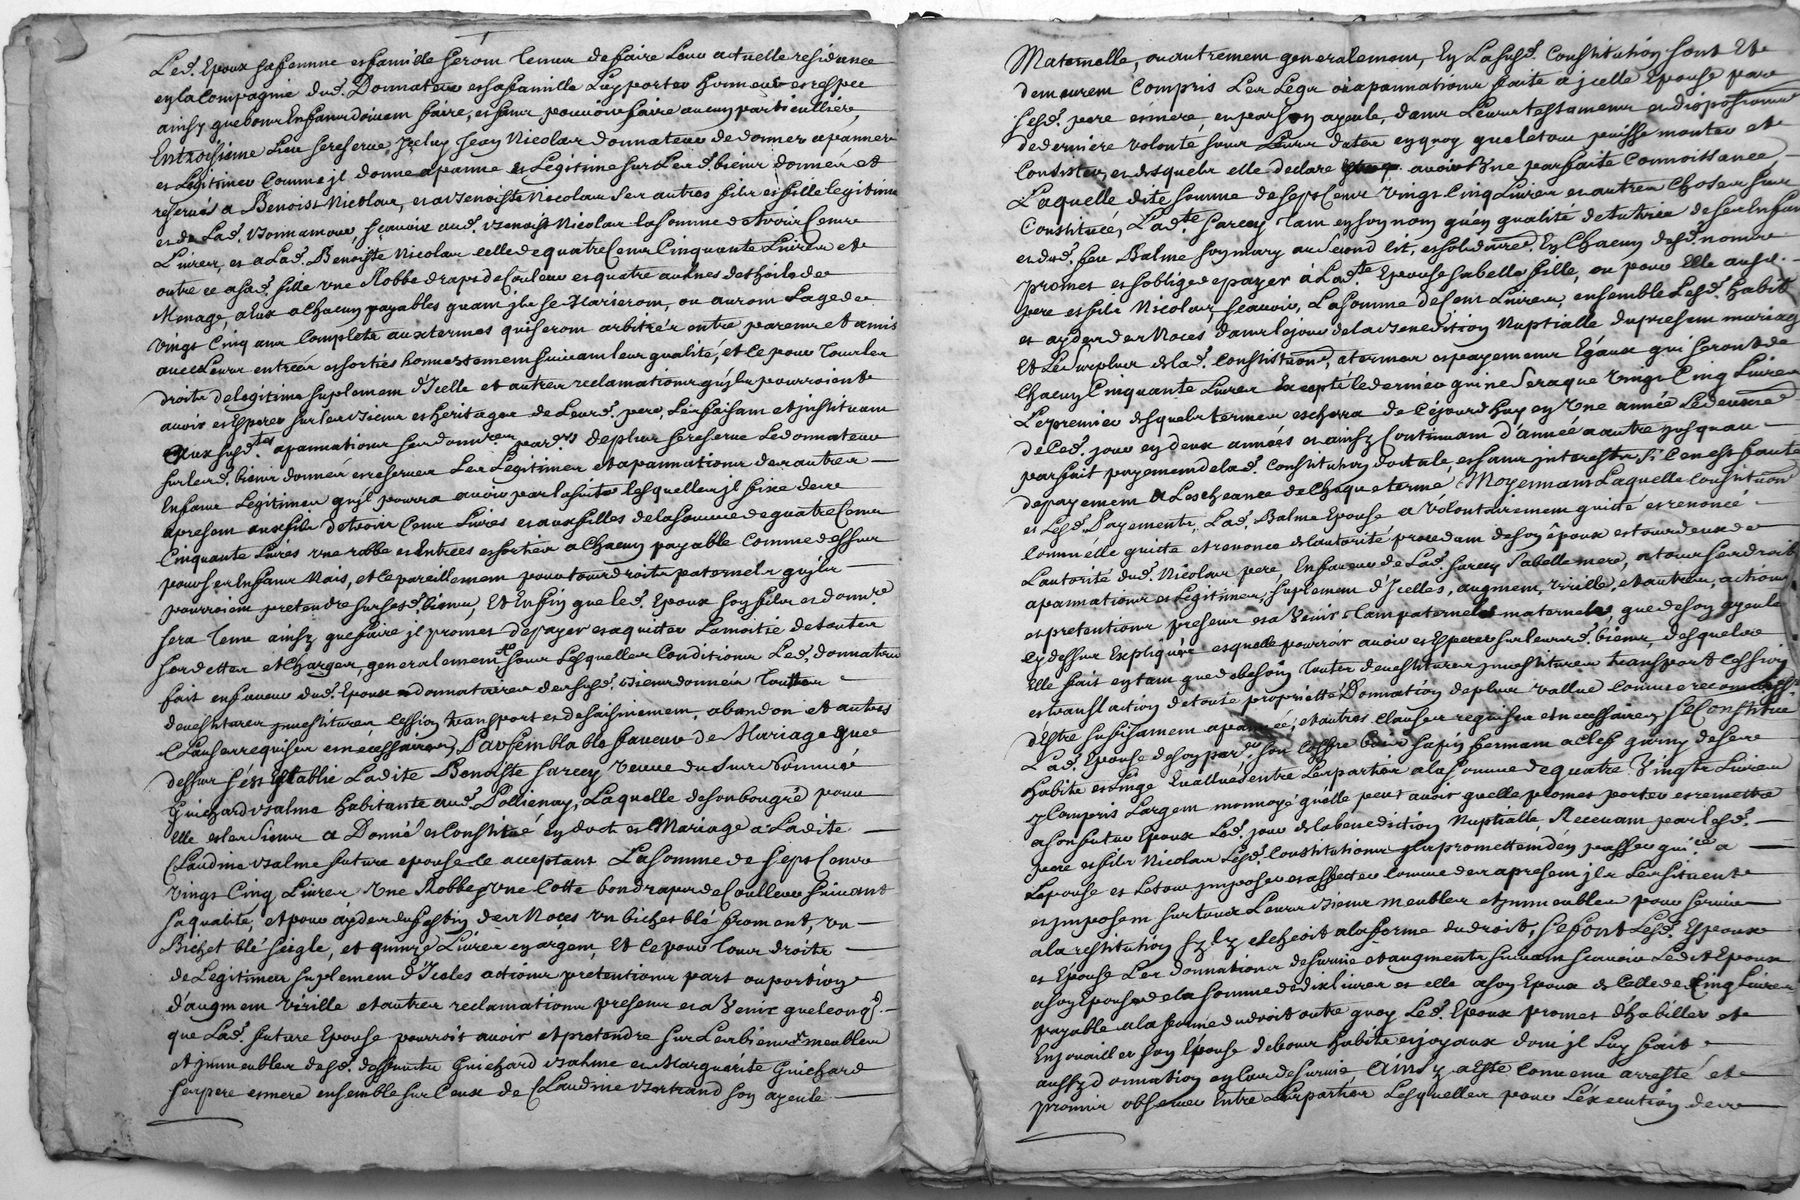 Led. Epoux sa femme et famille seront tenus de faire leur actuelle residence
en la Compagnie dud. Donnateur et sa famille luy porter honneur et respec
ainsy que bons Enfans doivent faire, et sans pouvoir faire aucun particullière,
Entroisieme lieu se reserve Jceluy Jean Nicolas donnateur de donner apanner
et Legitimer comme jl donne apanne et Legitime sur Lesd. biens donnes et
reservés a Benoist Nicolas, et a Benoiste Nicolas ses autres fils et fille legitime
et de Lad. Bonnamour, scavoir aud. Benoist Nicolas la somme de trois Cents
Livres, et a Lad. Benoiste Nicolas celle de quatre Cents Cinquante Livres et
outre ce a sad. fille une Robbe drap de Couleur et quatre aulnes de thoile de
Menage, a Eux a Chacun payables quant jls se Marieront, ou auront l'age de
vingt Cinq ans Complets aux termes qui seront arbitrés entre parents et amis
avec Leurs entrées et sorties honnestement suivant leur qualité, et ce pour tous les
droits de legitime suplement d'Jcelle et autres reclamations qu'jls pourroient
avoir et Esperer sur les biens et heritages de Leurd. pere, Les faisant et jnstituant
Eux susd.tes apannations ses donn.res part.rs de plus se reserve Le donnateur
sur lesd. biens donnés et reservés Les Legitimes et apannations des autres
Enfans Legitimes qu'jl pourra avoir par la suite lesquelles jl fixe des
apresent aux fils de trois Cents Livres et aux filles de la somme de quatre Cents
Cinquante Livres une robbe et Entrées et sorties a Chacun payable Comme dessus
pour ses Enfans Nais, et ce pareillement pour tous droits paternels qu'jls
pourroient pretendre sur sesd. biens, Et Enfin que led. Epoux son fils et donn.re
sera tenu ainsy que faire jl promet de payer et aquitter La moitié de toutes
ses dettes et Charges, generalement sous Lesquelles Conditions Led. donnateur
fait en faveur dud. Epoux donnataire des susd. biens donnés toutes
devestitures jnvestitures Cession transport et desaisinement, abandon et autres
Clauses requises et necessaires, Par semblable faveur de Mariage que
dessus s'est Establie Ladite Benoiste Sarcey veuve du Sieur
Guichard Balme habitante aud. Pollienay, Laquelle de son bon gré pour
Elle et les siens a Donné et Constitué en doct et Mariage a Ladite
Claudine Balme future epouse ce acceptant La somme de sept Cents
vingt Cinq Livres Une Robbe Une Cotte bon drap de Coulleur suivant
sa qualité, et pour ayder du festin des Noces un bichet blé froment, un
Bichet blé seigle, et quinze Livres en argent, Et ce pour tous droits
de Legitimes suplement d'Jceles actions pretentions part ou portion
d'augment virille et autres reclamations presents et a Venir quelconq.
que Lad. future Epouse pourroit avoir et pretendre sur Les biens meubles
et jmmeubles desd. deffunts Guichard Balme et Marguerite Guichard
ses pere et mere ensemble sur ceux de Claudine Bertrand son ayeule
Maternelle, ou autrement generalement, En Lasusd. Constitution sont Et
demeurent Compris Les Legs et apannations faite a jcelle Epouse par
sesd. pere et mere, et par son ayeule, dans Leurs testaments et dispositions
de derniere volonté sous Leurs dates en quoy que le tout puisse monter et
Consister, et desquels elle declare avoir Une parfaite Connoissance,
Laquelle dite somme de sept Cents vingt Cinq Livres et autres Choses sus
Constituées, Lad.te Sarcey tant en son nom qu'en qualité de tutrice de ses Enfans
et dud. feu Balme son mary au second lit, et solidaire En Chacun desd. noms
promet et s'oblige de payer a Lad.te Epouse sa belle fille, ou pour Elle ausd.
pere et fils Nicolas, scavoir, La somme de Cent Livres, ensemble Lesd. habits
et ayder des Noces dans le jour de la Benediction Nuptialle du present mariage
Et Le surplus de lad. Constitution, a termes et payements Egaux qui seront de
Chacun Cinquante Livres Excepté le dernier qui ne sera que vingt Cinq Livres
Le premier desquels termes escherra de Cejourd'huy en Une année Le deuxieme
de Ced. jour en deux années et ainsy Continuant d'année a autre jusqu'au
parfait payement de lad. Constitution doctale, et sans jnterests si Ce n'est faute
de payement a Lescheance de Chaque terme, Moyennant Laquelle Constitution
et Lesd. Payements, Lad. Balme Epouse a volontairement quité et renoncé
Comme elle quitte et renonce de l'autorité procedant de son epoux et tous deux de
Lautorité dud. Nicolas pere En faveur de Lad. Sarcey sa belle mere, a tous ses droits
apannations et Legitimes, suplement d'Jcelles, augment, virille, et autres, actions
et pretentions presents et a Venir tant paternels maternels, que de son ayeule
cy dessus Expliqués et quelle pourroit avoir et Esperer sur leurs d. biens, desquels
Elle fait en tant que de besoin toutes devestitures jnvestitures transport Cession
et translation de toute proprietté Donnation de plus vallue Comme reconnoiss
d'Estre sufisament apannée, et autres Clauses requises et necessaires, se Constitue
Lad. Epouse de son par son Coffre bois sapin fermant a clef garny de ses
habits et Linge Evallués entre Les parties a la somme de quatre Vingts Livres
y Compris L'argent monnoyé qu'elle peut avoir quelle promet porter et remettre
a son futur Epoux Led. jour de la benediction Nuptialle, Recevant par Lesd.
pere et fils Nicolas Lesd. Constitutions jls promettent d'en passer quit.ce a
L'epouse et Le tout jmposer et affecter Comme des apresent jls Les situent
et jmposent sur tous Leurs Biens meubles et jmmeubles pour servir
a la restitution s'y elcheoit a la forme du droit, se font Lesd. Epoux
et Epouse Les donnations de survie et augments suivant scavoir Ledit Epoux
a son Epouse de la somme de dix Livres et elle a son Epoux de Celle de Cinq Livres
payable a la forme du droit outre quoy Led. Epoux promet d'habiller et
Enjouailler son Epouse de bons habits et joyaux dont jl Luy fait
aussy donnation en Cas de survie Ainsy a esté Convenu arresté et
promis observer Entre Les parties Lesquelles pour L'execution des